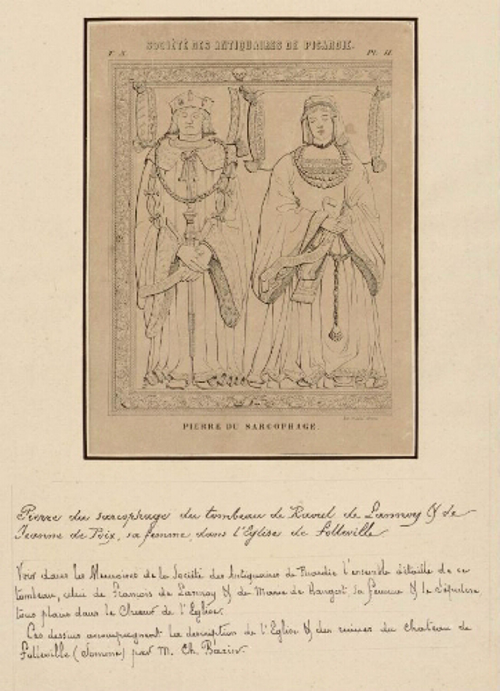 SOCIÉTÉ DES ANTIQUAIRES DE PICARDIE.
T. X. Pl. II.
PIERRE DU SARCOPHAGE.
Pierre du sarcophage du tombeau de Raoul de Lannoy & de
Jeanne de Poix, sa femme, dans l'Eglise de Folleville
Voir dans les Mémoires de la Société des Antiquaires de Picardie l'ensemble détaillé de ce
tombeau, celui de François de Lannoy & de Marie de Hangest sa femme & le Sépulcre
tous placés dans le Chœur de l'Eglise.
Ces dessins accompagnent la description de l'Eglise & des ruines du chateau de
Folleville (Somme) par M. Ch. Bazin